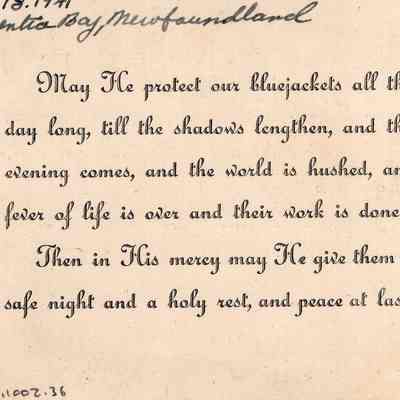 Bay, Newfoundland
May He protect our bluejackets all
day long, till the shadows lengthen, and
evening comes, and the world is hushed,
fever of life is over and their work is done
Then in His mercy may He give them
safe night and a holy rest, and peace at
.1002.36